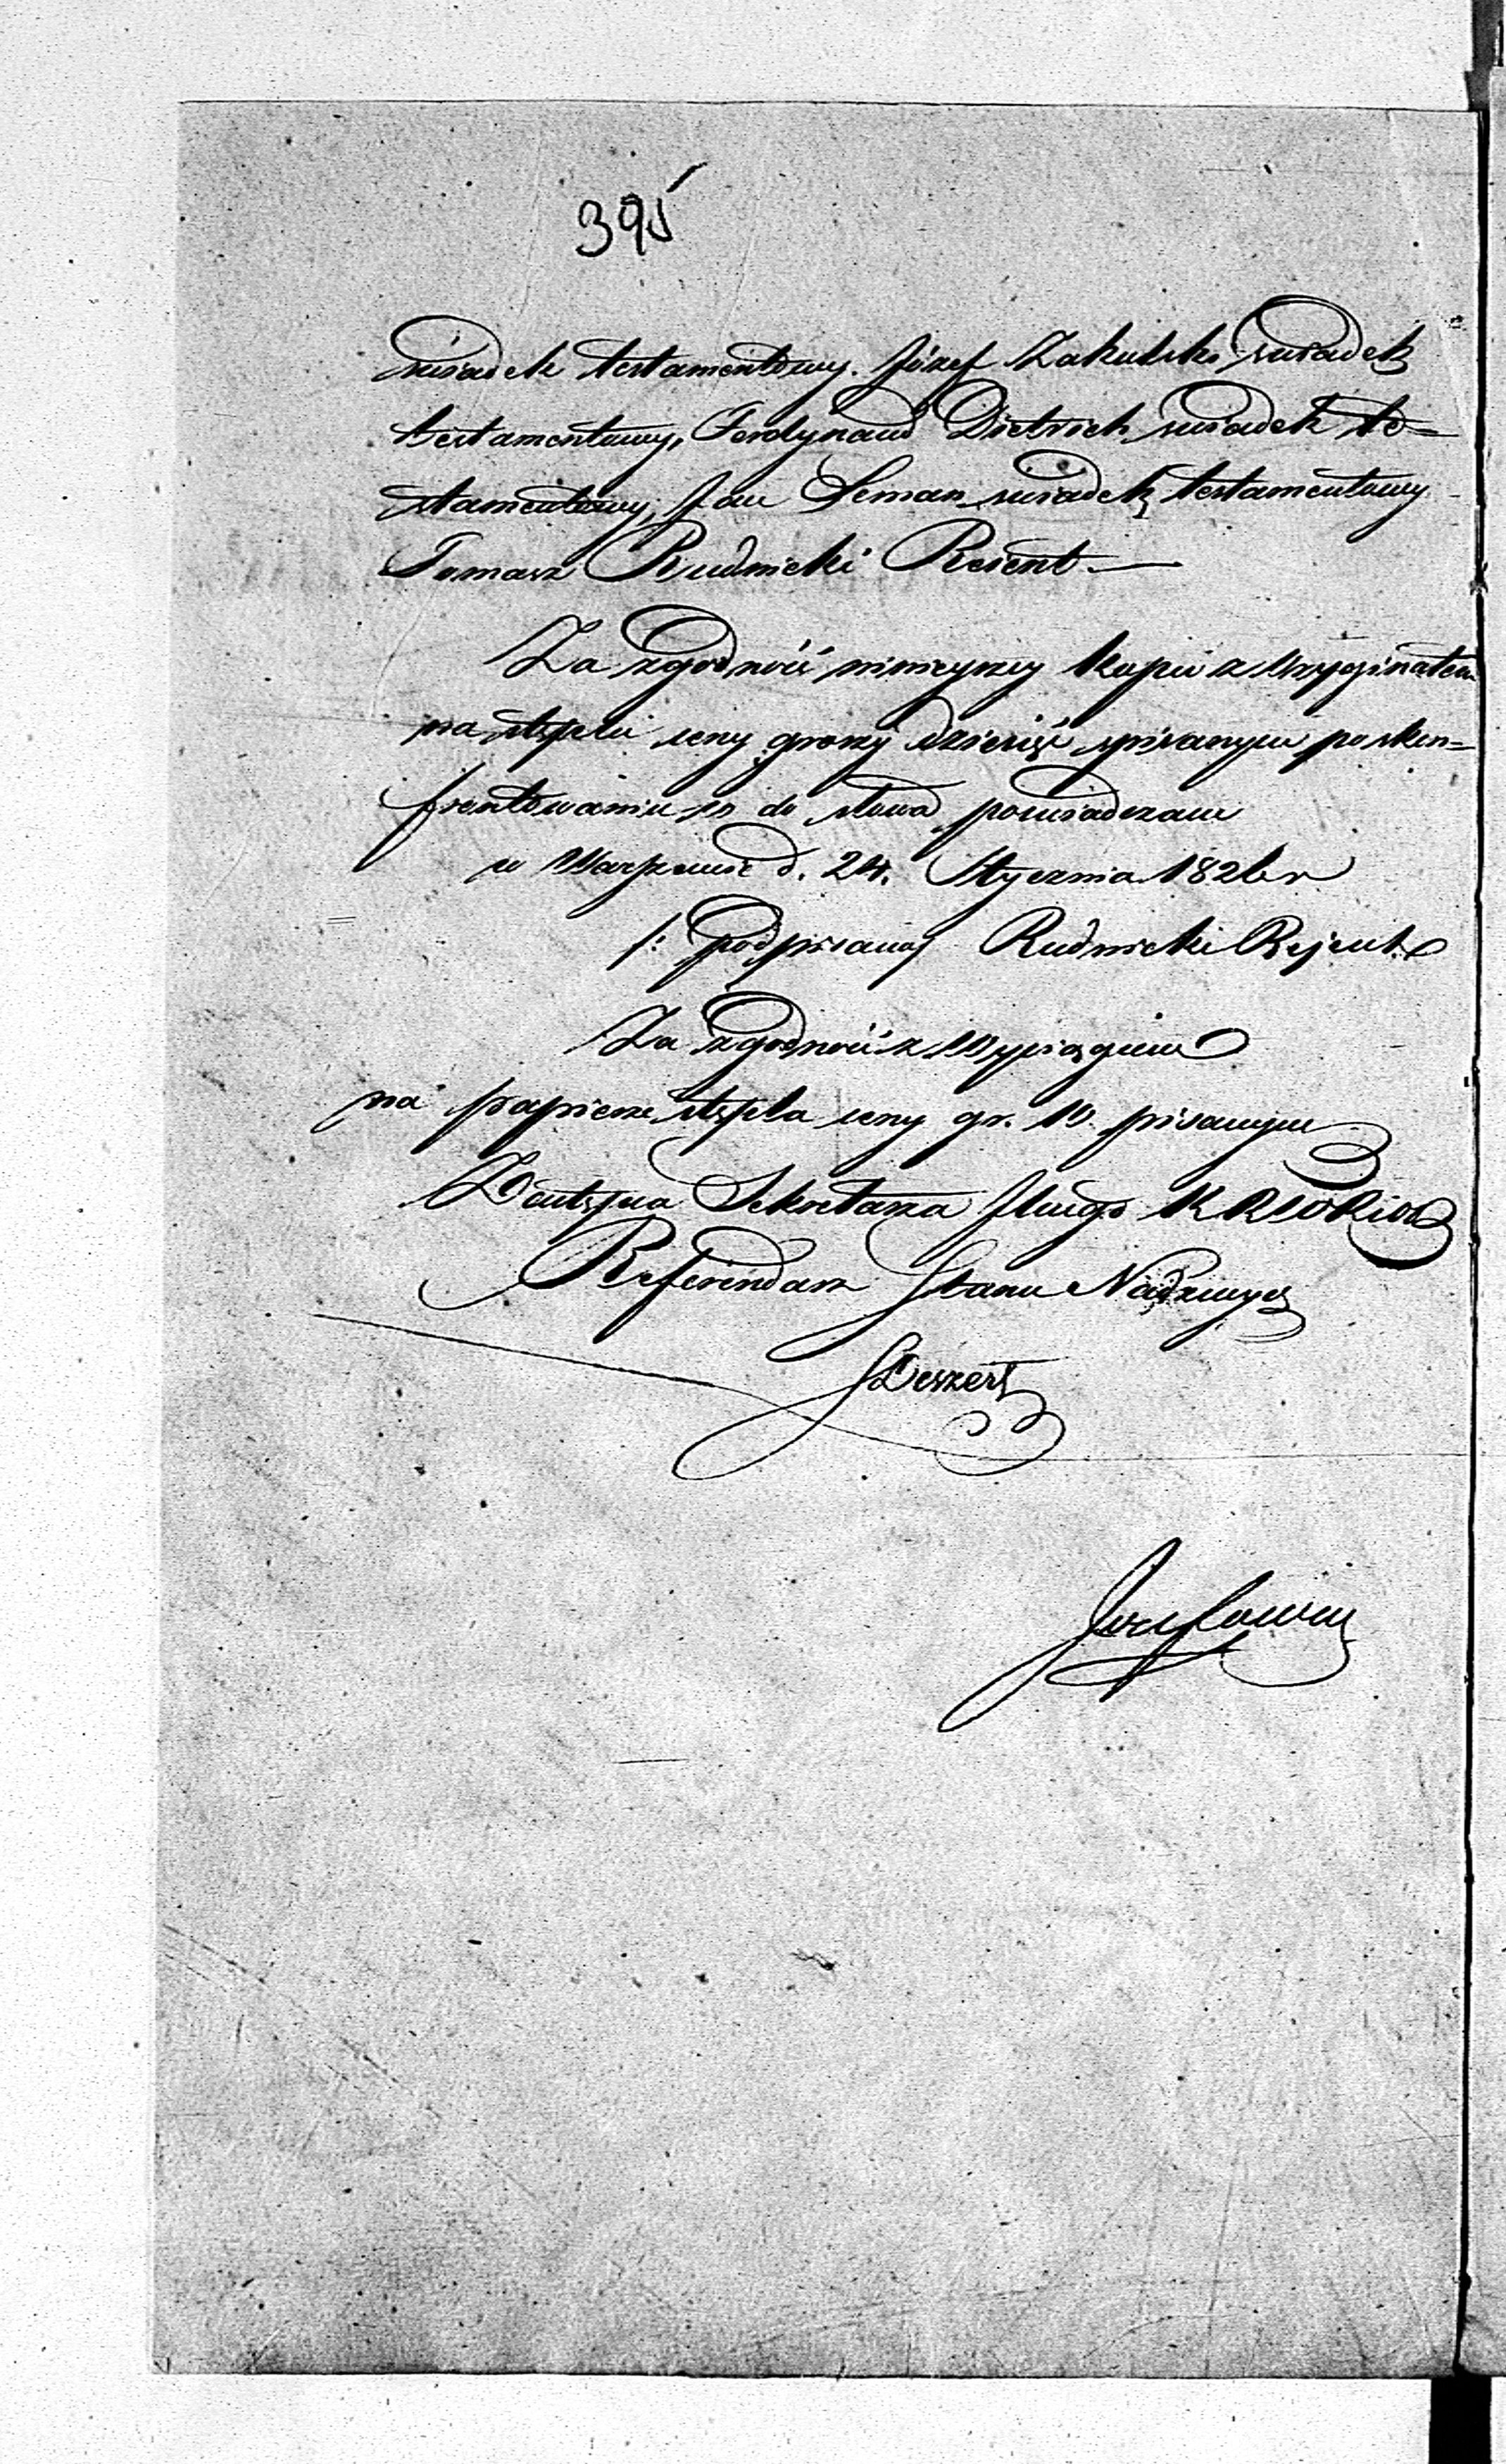 395
świadek testamentowy. Józef Zakulski świadek
testamentowy, Ferdynand Dietrich świadek te=
stamentowy, Jan Leman świadek testamentowy
Tomasz Rudnicki Reient —
Za zgodność ninieyszey kopii z oryginałem
na stęplu ceny groszy dziesięć spisanym po skon=
frontowaniu co do słowa poswiadczam
w Warszawie d. 24. Stycznia 1826 r
/: podpisany Rudnicki Rejent.
Za zgodność z Wypisem
na papierze stępla ceny gr. 10. pisanym
Sekretarza
Referendarz Stanu Nadzwycz
Deszert